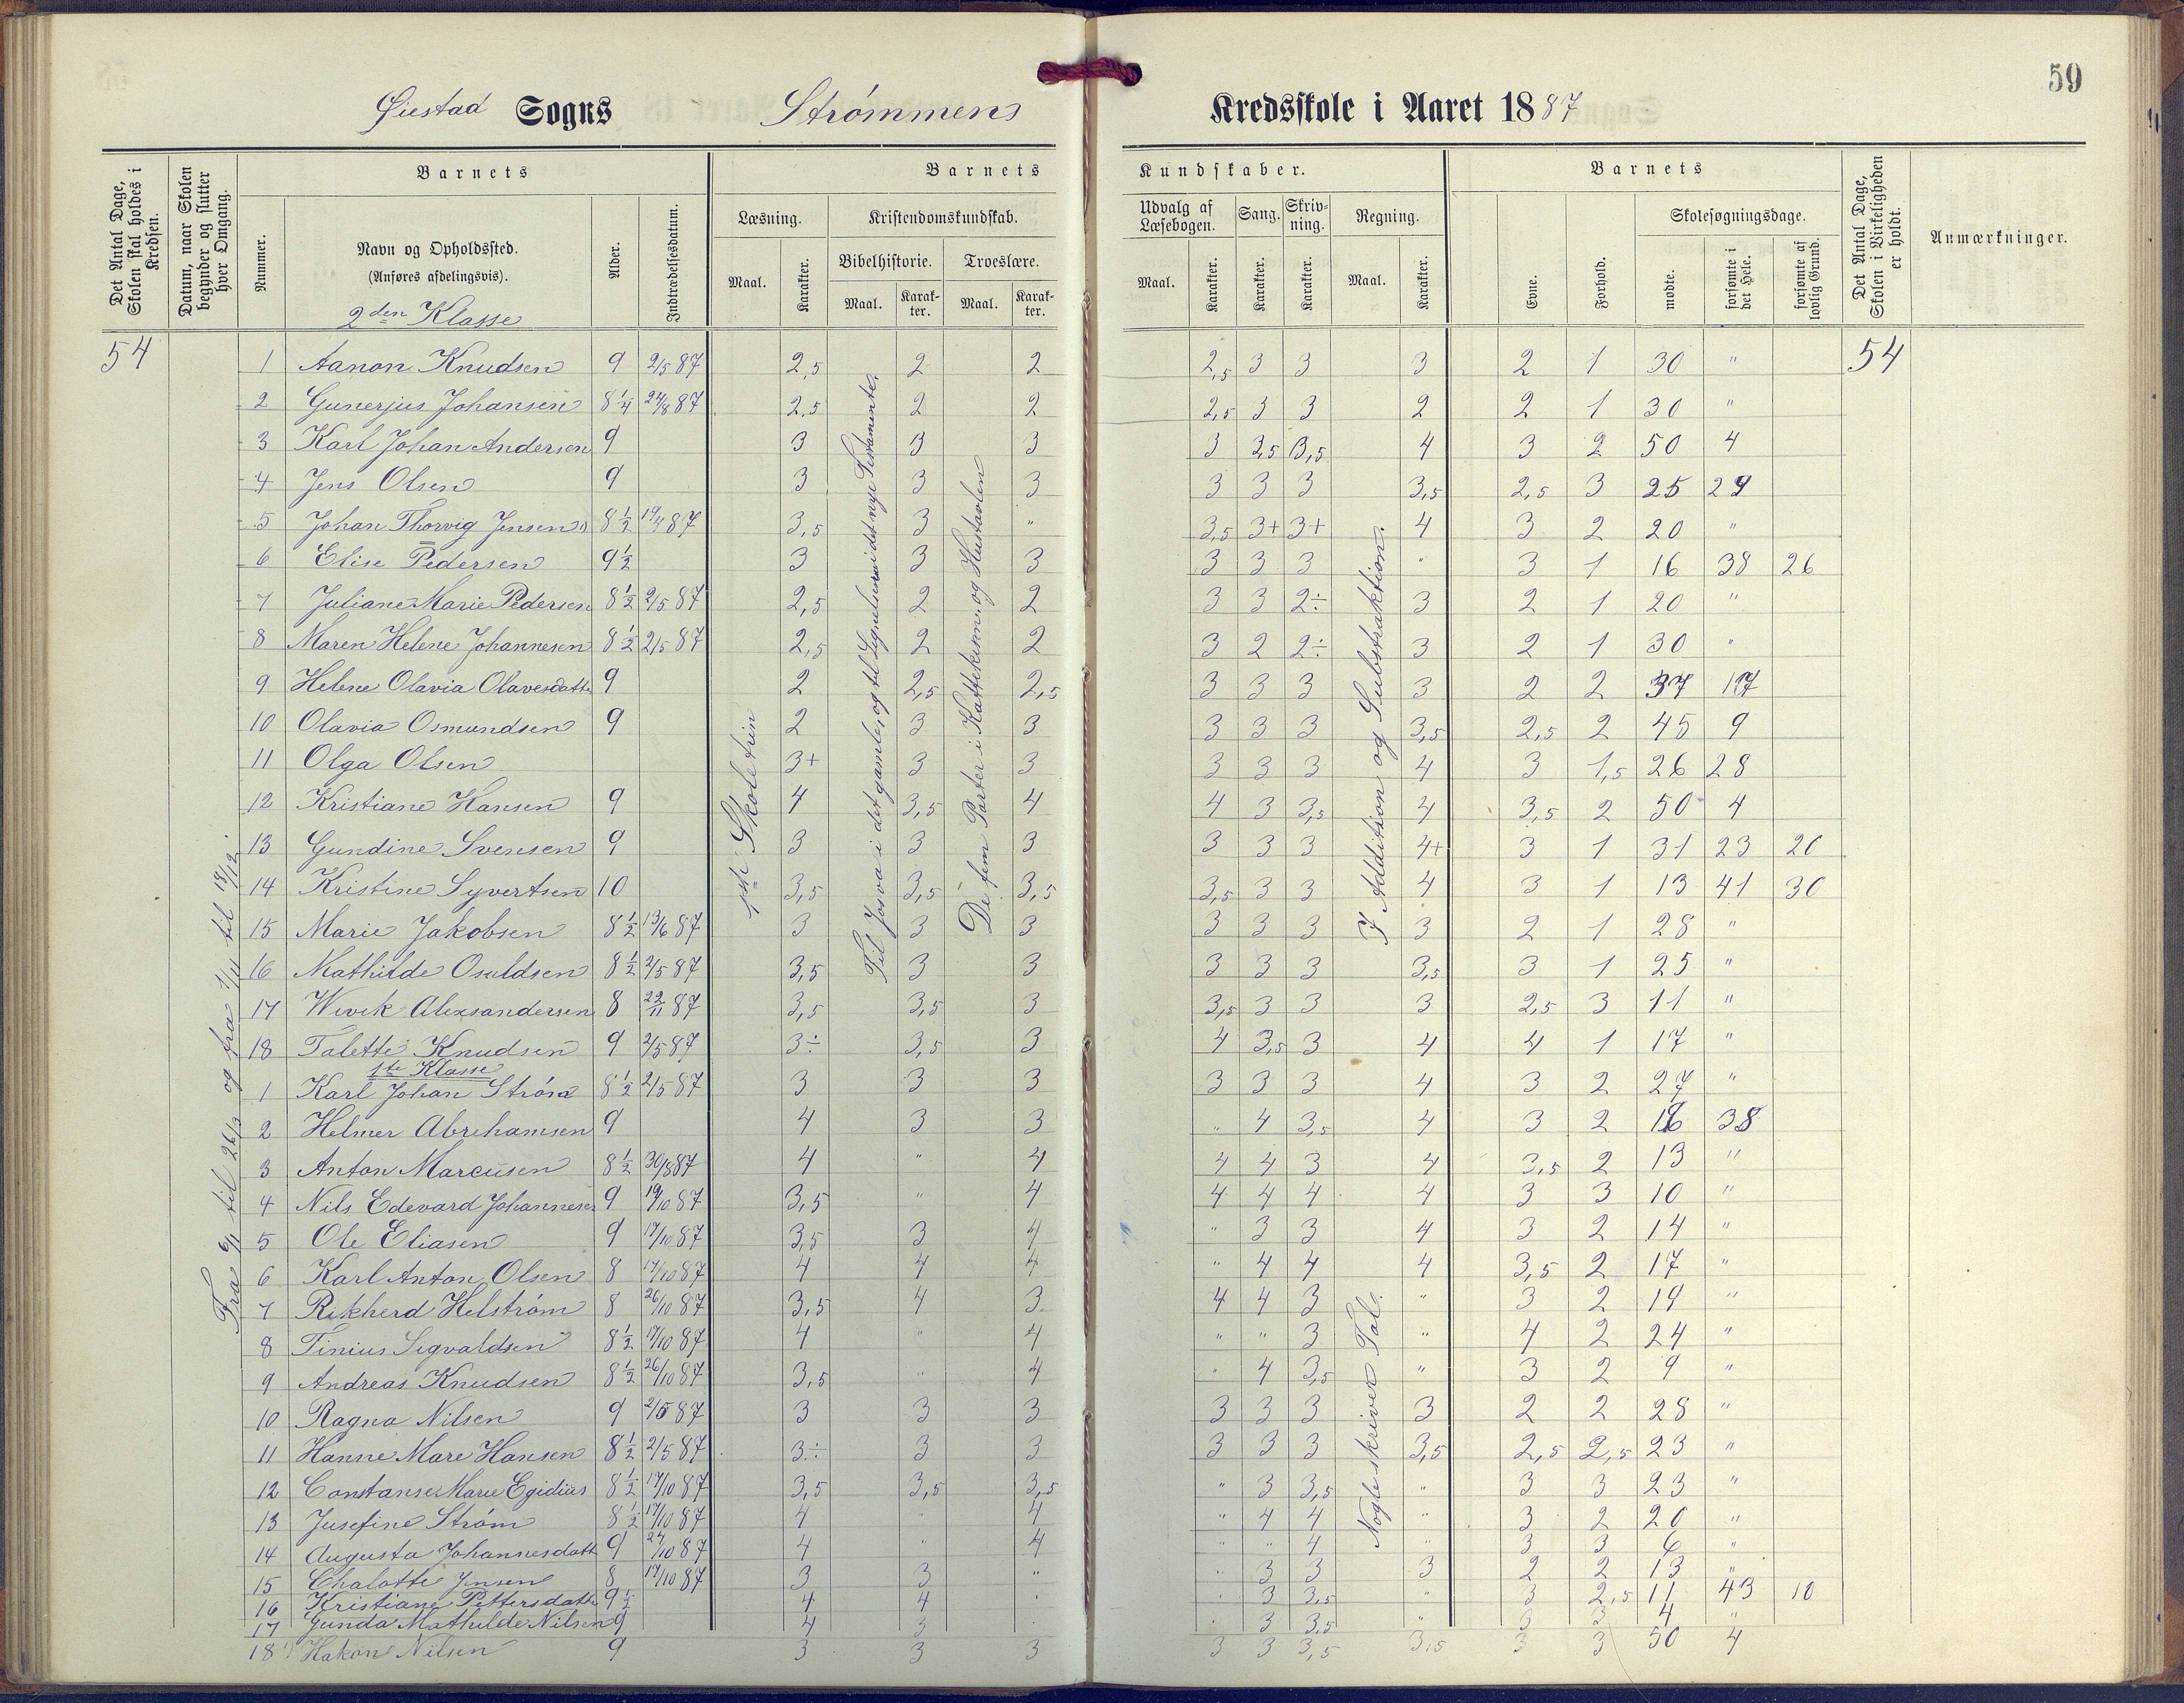 59
Øiestad Sogns Strømmens Kredsskole i Aaret 1887
Det Antal Dage, Skolen skal holdes i Kredsen.
Datum, naar Skolen begynder og slutter hver Omgang.
Barnets
Nummer.
Navn og Opholdssted.
(Anføres afdelingsvis).
Alder.
Indtrædelsesdatum.
Barnets Kundskaber.
Læsning.
Maal.
Karakter.
Kristendomskundskab.
Bibelhistorie.
Maal.
Karakter.
Troeslære.
Maal.
Karakter.
Udvalg af Læsebogen.
Maal.
Karakter.
Sang.
Karakter.
Skrivning.
Karakter.
Regning.
Maal.
Karakter.
Barnets
Evne.
Forhold.
Skolesøgningsdage.
mødte.
forsømte i det Hele.
forsømte af lovlig Grund.
Det Antal Dage, Skolen i Virkeligheden er holdt.
Anmærkninger.
Fra til 26/3 og fra 1/11 til
1ste Skoletrin
Til Josva i det gamle, og til Lignelserne i det nye Testamente.
De fem Parter i Kattekism. og Hustavlen
I Addition og Substraktion.
Nogle skriver Tal.
2den Klasse
54 1 Aanon Knudsen 9 2/5 87 2,5 2 2 2,5 3 3 3 2 1 30 " 54
2 Gunerius Johansen 8 1/4 24/8 87 2,5 2 2 2,5 3 3 2 2 1 30 "
3 Karl Johan Andersen 9 3 3 3 3 2,5 3,5 4 3 2 50 4
4 Jens Olsen 9 3 3 3 3 3 3 3,5 2,5 3 25 29
5 Johan Thorvig Jensen 8 1/2 19/4 87 3,5 3 " 3,5 3+ 3+ 4 3 2 20 "
6 Elise Pedersen 9 1/2 3 3 3 3 3 3 " 3 1 16 38 26
7 Juliane Marie Pedersen 8 1/2 2/5 87 2,5 2 2 3 3 2÷ 3 2 1 20 "
8 Maren Helene Johannesen 8 1/2 2/5 87 2,5 2 2 3 2 2÷ 3 2 1 30 "
9 Helene Olavia Olavesdatt 9 2 2,5 2,5 3 3 3 3 2 2 37 17
10 Olavia Osmundsen 9 2 3 3 3 3 3 3,5 2,5 2 45 9
11 Olga Olsen 3+ 3 3 3 3 3 4 3 1,5 26 28
12 Kristiane Hansen 9 4 3,5 4 4 3 3,5 4 3,5 2 50 4
13 Gundine Svensen 9 3 3 3 3 3 3 4+ 3 1 31 23 20
14 Kristine Syvertsen 10 3,5 3,5 3,5 3,5 3 3 4 3 1 13 41 30
15 Marie Jakobsen 8 1/2 13/6 87 3 3 3 3 3 3 3 2 1 28 "
16 Mathilde Osuldsen 8 1/2 2/5 87 3,5 3 3 3 3 3 3,5 3 1 25 "
17 Wivik Alexsandersen 8 22/11 87 3,5 3,5 3 3,5 3 3 3 2,5 3 11 "
18 Talette Knudsen 9 2/5 87 3÷ 3,5 3 4 3,5 3 4 4 1 17 "
1ste Klasse
1 Karl Johan Strøm 8 1/2 2/5 87 3 3 3 3 3 3 4 3 2 27 "
2 Helmer Abrehamsen 9 4 3 3 " 4 3,5 4 3 2 16 38
3 Anton Marcusen 8 1/2 30/8 87 4 " 4 4 4 3 4 3,5 2 13 "
4 Nils Edevard Johannesen 9 19/10 87 3,5 " 4 4 4 4 4 3 3 10 "
5 Ole Eliasen 9 17/10 87 3,5 3 4 " 3 3 4 3 2 14 "
6 Karl Anton Olsen 8 17/10 87 4 4 4 " 4 4 4 3,5 2 17 "
7 Rikherd Helstrøm 8 26/10 87 3,5 4 3 4 4 3 " 3 2 19 "
8 Tinius Sigvaldsen 8 1/2 17/10 87 4 " 4 " " 3 " 4 2 24 "
9 Andreas Knudsen 8 1/2 26/10 87 3,5 " 4 " 4 3,5 " 3 2 9 "
10 Ragna Nilsen 9 2/5 87 3 3 3 3 3 3 3 2 2 28 "
11 Hanne Mare Hansen 8 1/2 2/5 87 3÷ 3 3 3 3 3 3,5 2,5 2,5 23 "
12 Constanse Marie Egidius 8 1/2 17/10 87 3,5 3,5 3,5 " 3 3,5 " 3 3 23 "
13 Jusefine Strøm 8 1/2 17/10 87 4 " 4 " 4 4 " 3 2 20 "
14 Augusta Johannesdatt 9 24/10 87 4 " 4 " " 4 " 3 3 6 "
15 Chalotte Jensen 8 17/10 87 3 3 " " 3 3 3 2 2 13 "
16 Kristiane Pettersdatt 9 1/2 4 4 " " 3 3,5 " 3 2,5 11 43 10
17 Gunda Mathilde Nilsen 9 4 3 " " 3 3,5 " 3 3 4 "
18 Hakon Nilsen 9 3 3 3 3 3 3,5 3,5 3 3 50 4